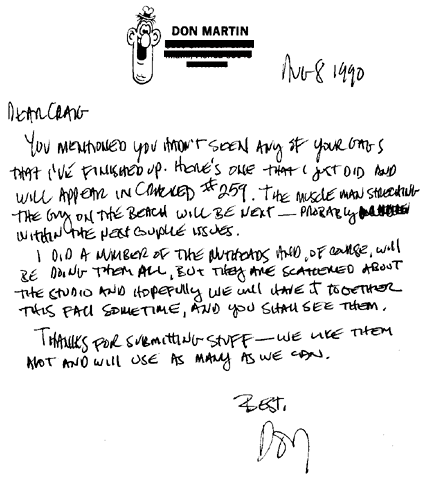 DON MARTIN
AUG 8 1990
DEAR CRAIG
YOU MENTIONED YOU HADN'T SEEN ANY OF YOUR GAGS
THAT I'VE FINISHED UP. HERE'S ONE THAT I JUST DID AND
WILL APPEAR IN CRACKED #259. THE MUSCLE MAN STRETCHING
THE GUY ON THE BEACH WILL BE NEXT — PROBABLY
WITHIN THE NEXT COUPLE ISSUES.
I DID A NUMBER OF THE NUTHEADS AND, OF COURSE, WILL
BE DOING THEM ALL, BUT THEY ARE SCATTERED ABOUT
THE STUDIO AND HOPEFULLY WE WILL HAVE IT TOGETHER
THIS FALL SOMETIME, AND YOU SHALL SEE THEM.
THANKS FOR SUBMITTING STUFF — WE LIKE THEM
ALOT AND WILL USE AS MANY AS WE CAN.
BEST,
DON